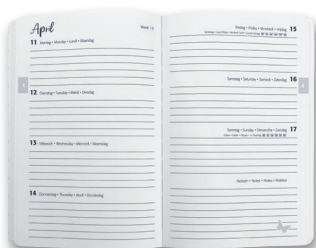 April
Week 15
11 Montag • Monday • Lundi • Maandag
12 Dienstag • Tuesday • Mardi • Dinsdag
13 Mittwoch • Wednesday • Mercredi • Woensdag
14 Donnerstag • Thursday • Jeudi • Donderdag
4
Freitag • Friday • Vendredi • Vrijdag 15
Samstag • Saturday • Samedi • Zaterdag 16
4
Sonntag • Sunday • Dimanche • Zondag 17
Notizen • Notes • Notes • Notities